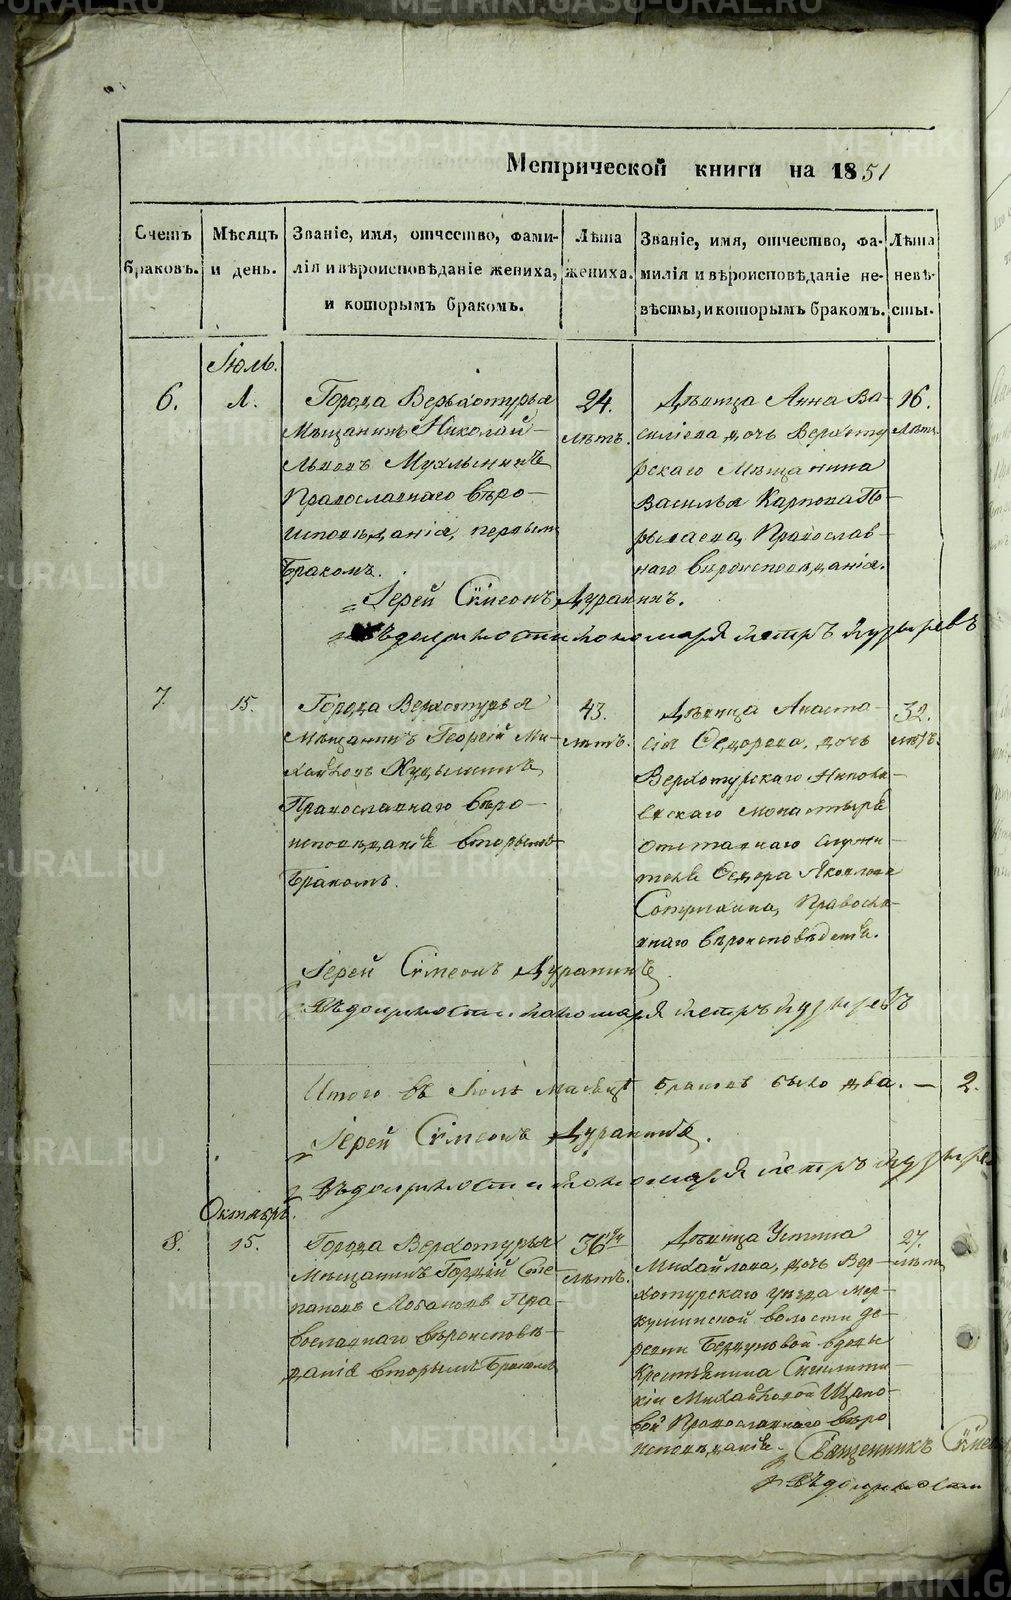 Метрической книги на 1851
Счетъ браковъ.
Мѣсяцъ и день.
Званіе, имя, отчество, фами-
лія и вѣроисповѣданіе жениха,
и которымъ бракомъ.
Лѣта
жениха.
Званіе, имя, отчество, фа-
милія и вѣроисповѣданіе не-
вѣсты, и которымъ бракомъ.
Лѣта
невѣ-
сты.
Іюль.
6.
Города Верхотурья
Мѣщанинъ Николай
Православнаго вѣро-
исповѣданія, первым
бракомъ.
24.
лѣтъ.
Дѣвица Анна Ва-
силіева, дочь Верхоту
рскаго Мѣщанина
Василья Карпова По-
Православ-
наго вѣроисповѣданія.
16.
лѣтъ.
Іерей Сѵмеонъ Дурапинъ.
Въ должности пономаря Петръ Пузыревъ
7.
15.
Города Верхотурья
Мѣщанинъ Георгій Ми-
хайловъ
Православнаго вѣро-
исповѣданія вторымъ
бракомъ.
43.
лѣтъ.
Дѣвица Анаста-
сія Ѳедорова, дочь
Верхотурскаго Никола-
евскаго монастыря
отставнаго служи-
теля Ѳедора Яковлева
Правосла-
внаго вѣроисповѣданія.
32.
лѣтъ.
Іерей Сѵмеонъ Дурапинъ
Въ должности пономаря Петръ Пузыревъ
Итого въ Іюлѣ мѣсяцѣ браковъ было два. — 2.
Іерей Сѵмеонъ Дурапинъ.
Въ должности пономаря Петръ Пузырев
Октябрь.
8.
15.
Города Верхотурья
Мѣщанинъ Гордѣй Сте-
пановъ Лобановъ Пра-
вославнаго вѣроисповѣ-
данія вторымъ бракомъ
36ти
лѣтъ.
Дѣвица
Михайлова, дочь Вер-
хотурскаго уѣзда Мер-
кушинской волости де-
ревни вдовы
Крестьянина
Михайловой Щапо-
вой Православнаго вѣро
исповѣданія.
27.
лѣтъ
Священникъ Сѵмео
Въ должности
METRIKI.GASO-URAL.RU